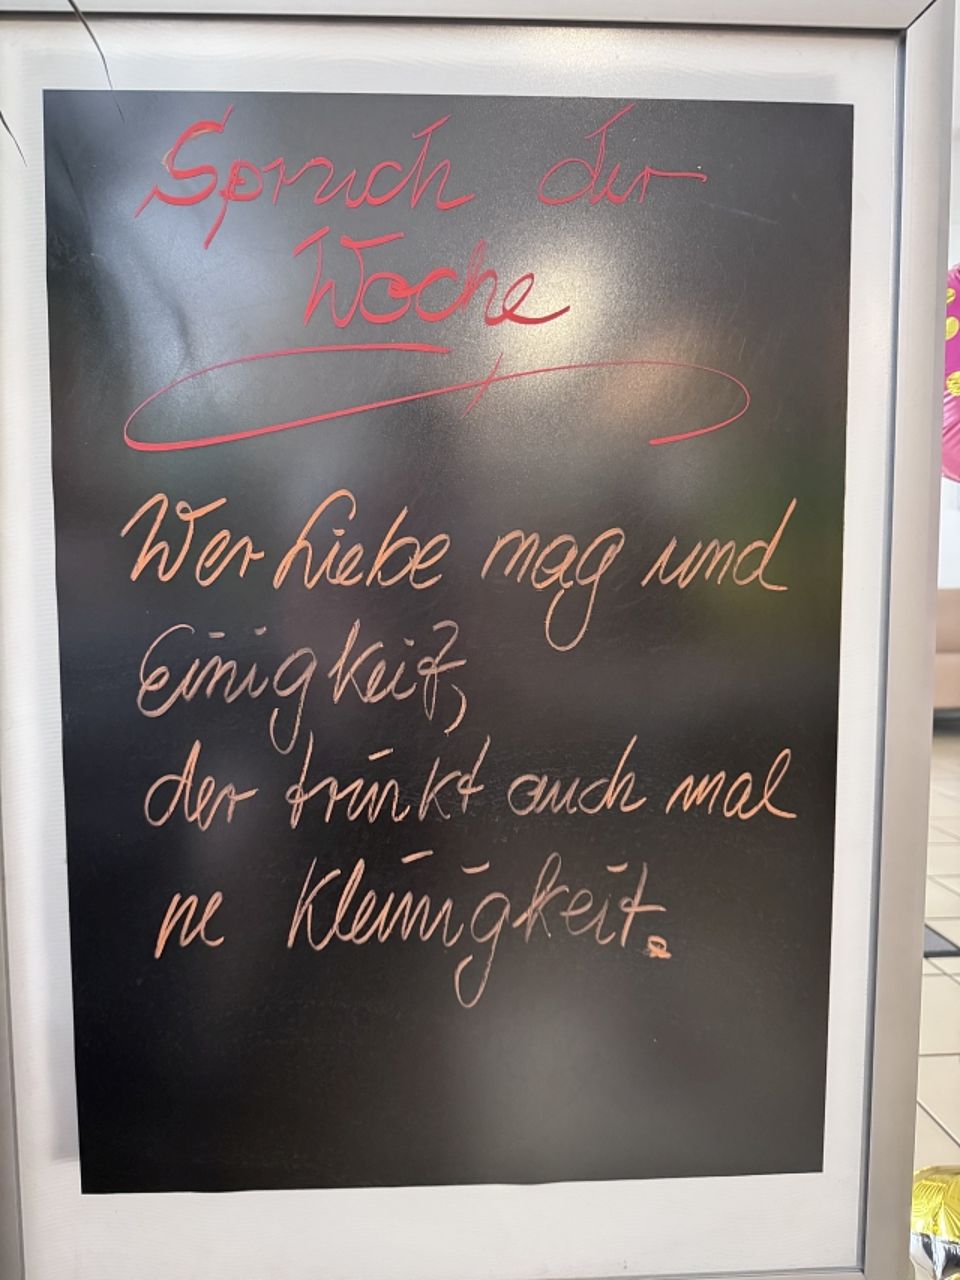 Spruch der
Woche
Wer Liebe mag und
Einigkeit,
der trinkt auch mal
ne Kleinigkeit.